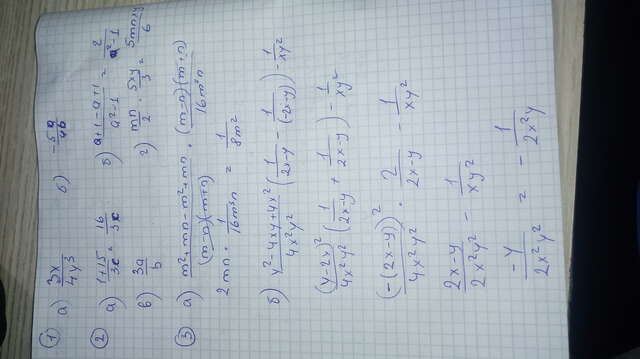 ① а) 3x/4y³ б) -5a/4b
② а) (1+15)/3c = 16/3c б) (a+1-a+1)/(a²-1) = 2/(a²-1)
в) 3a/b г) mn/2 · 5xy/3 = 5mnxy/6
③ а) (m²+mn-m²+mn)/((m-n)(m+n)) · ((m-n)(m+n))/16m³n
2mn · 1/16m³n = 1/8m²
б) (y²-4xy+4x²)/4x²y² (1/(2x-y) - 1/(-2x-y)) - 1/xy²
(y-2x)²/4x²y² (1/(2x-y) + 1/(2x-y)) - 1/xy²
(-(2x-y))²/4x²y² · 2/(2x-y) - 1/xy²
(2x-y)/2x²y² - 1/xy²
-y/2x²y² = - 1/2x²y